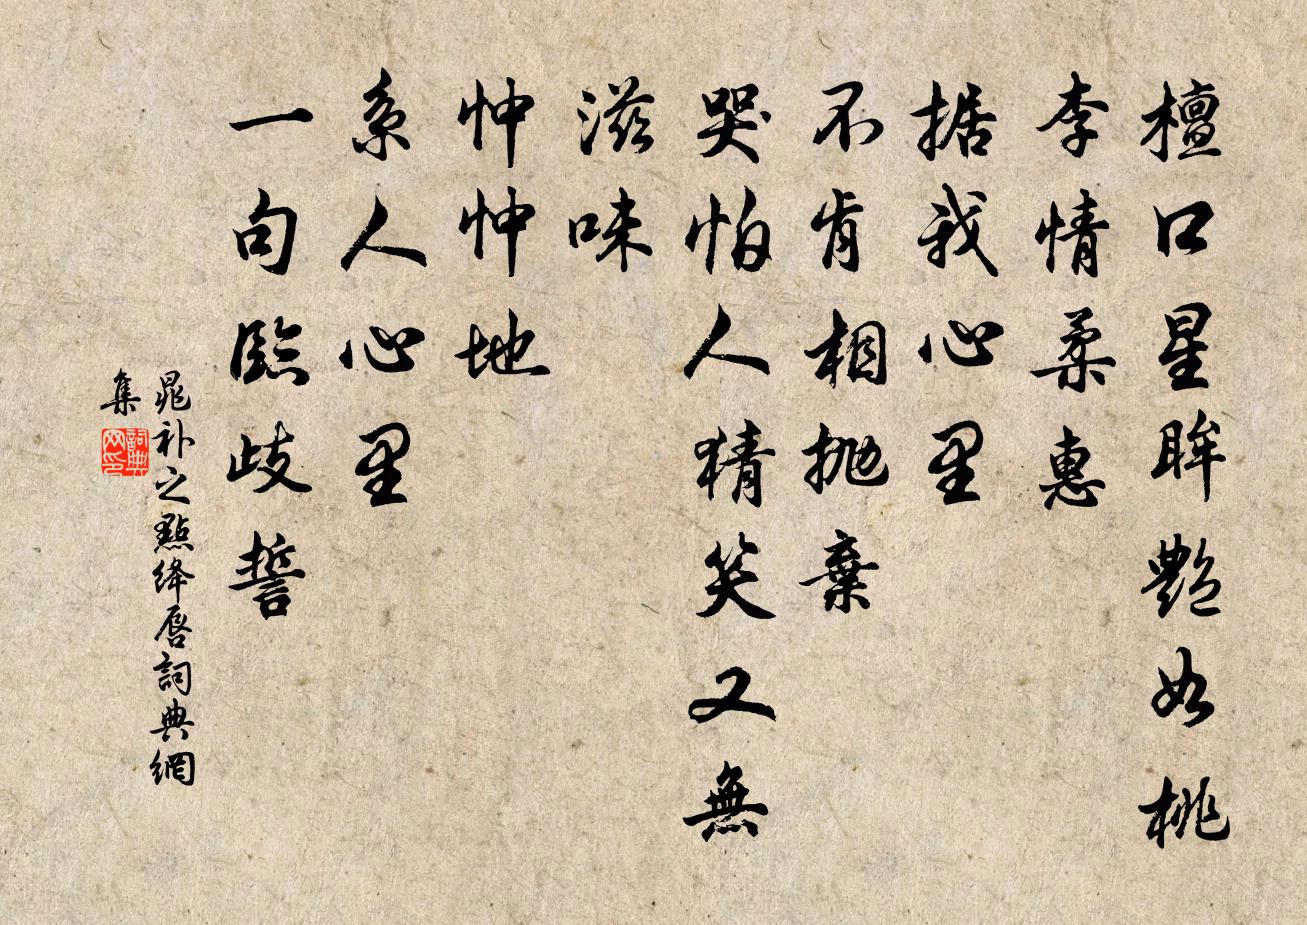 檀口星眸艷如桃
李情柔惠
据我心里
不肯相抛棄
哭怕人猜笑又無
滋味
忡忡地
系人心里
一句臨歧誓
晁补之點絳唇詞典網
集
詞典
网印